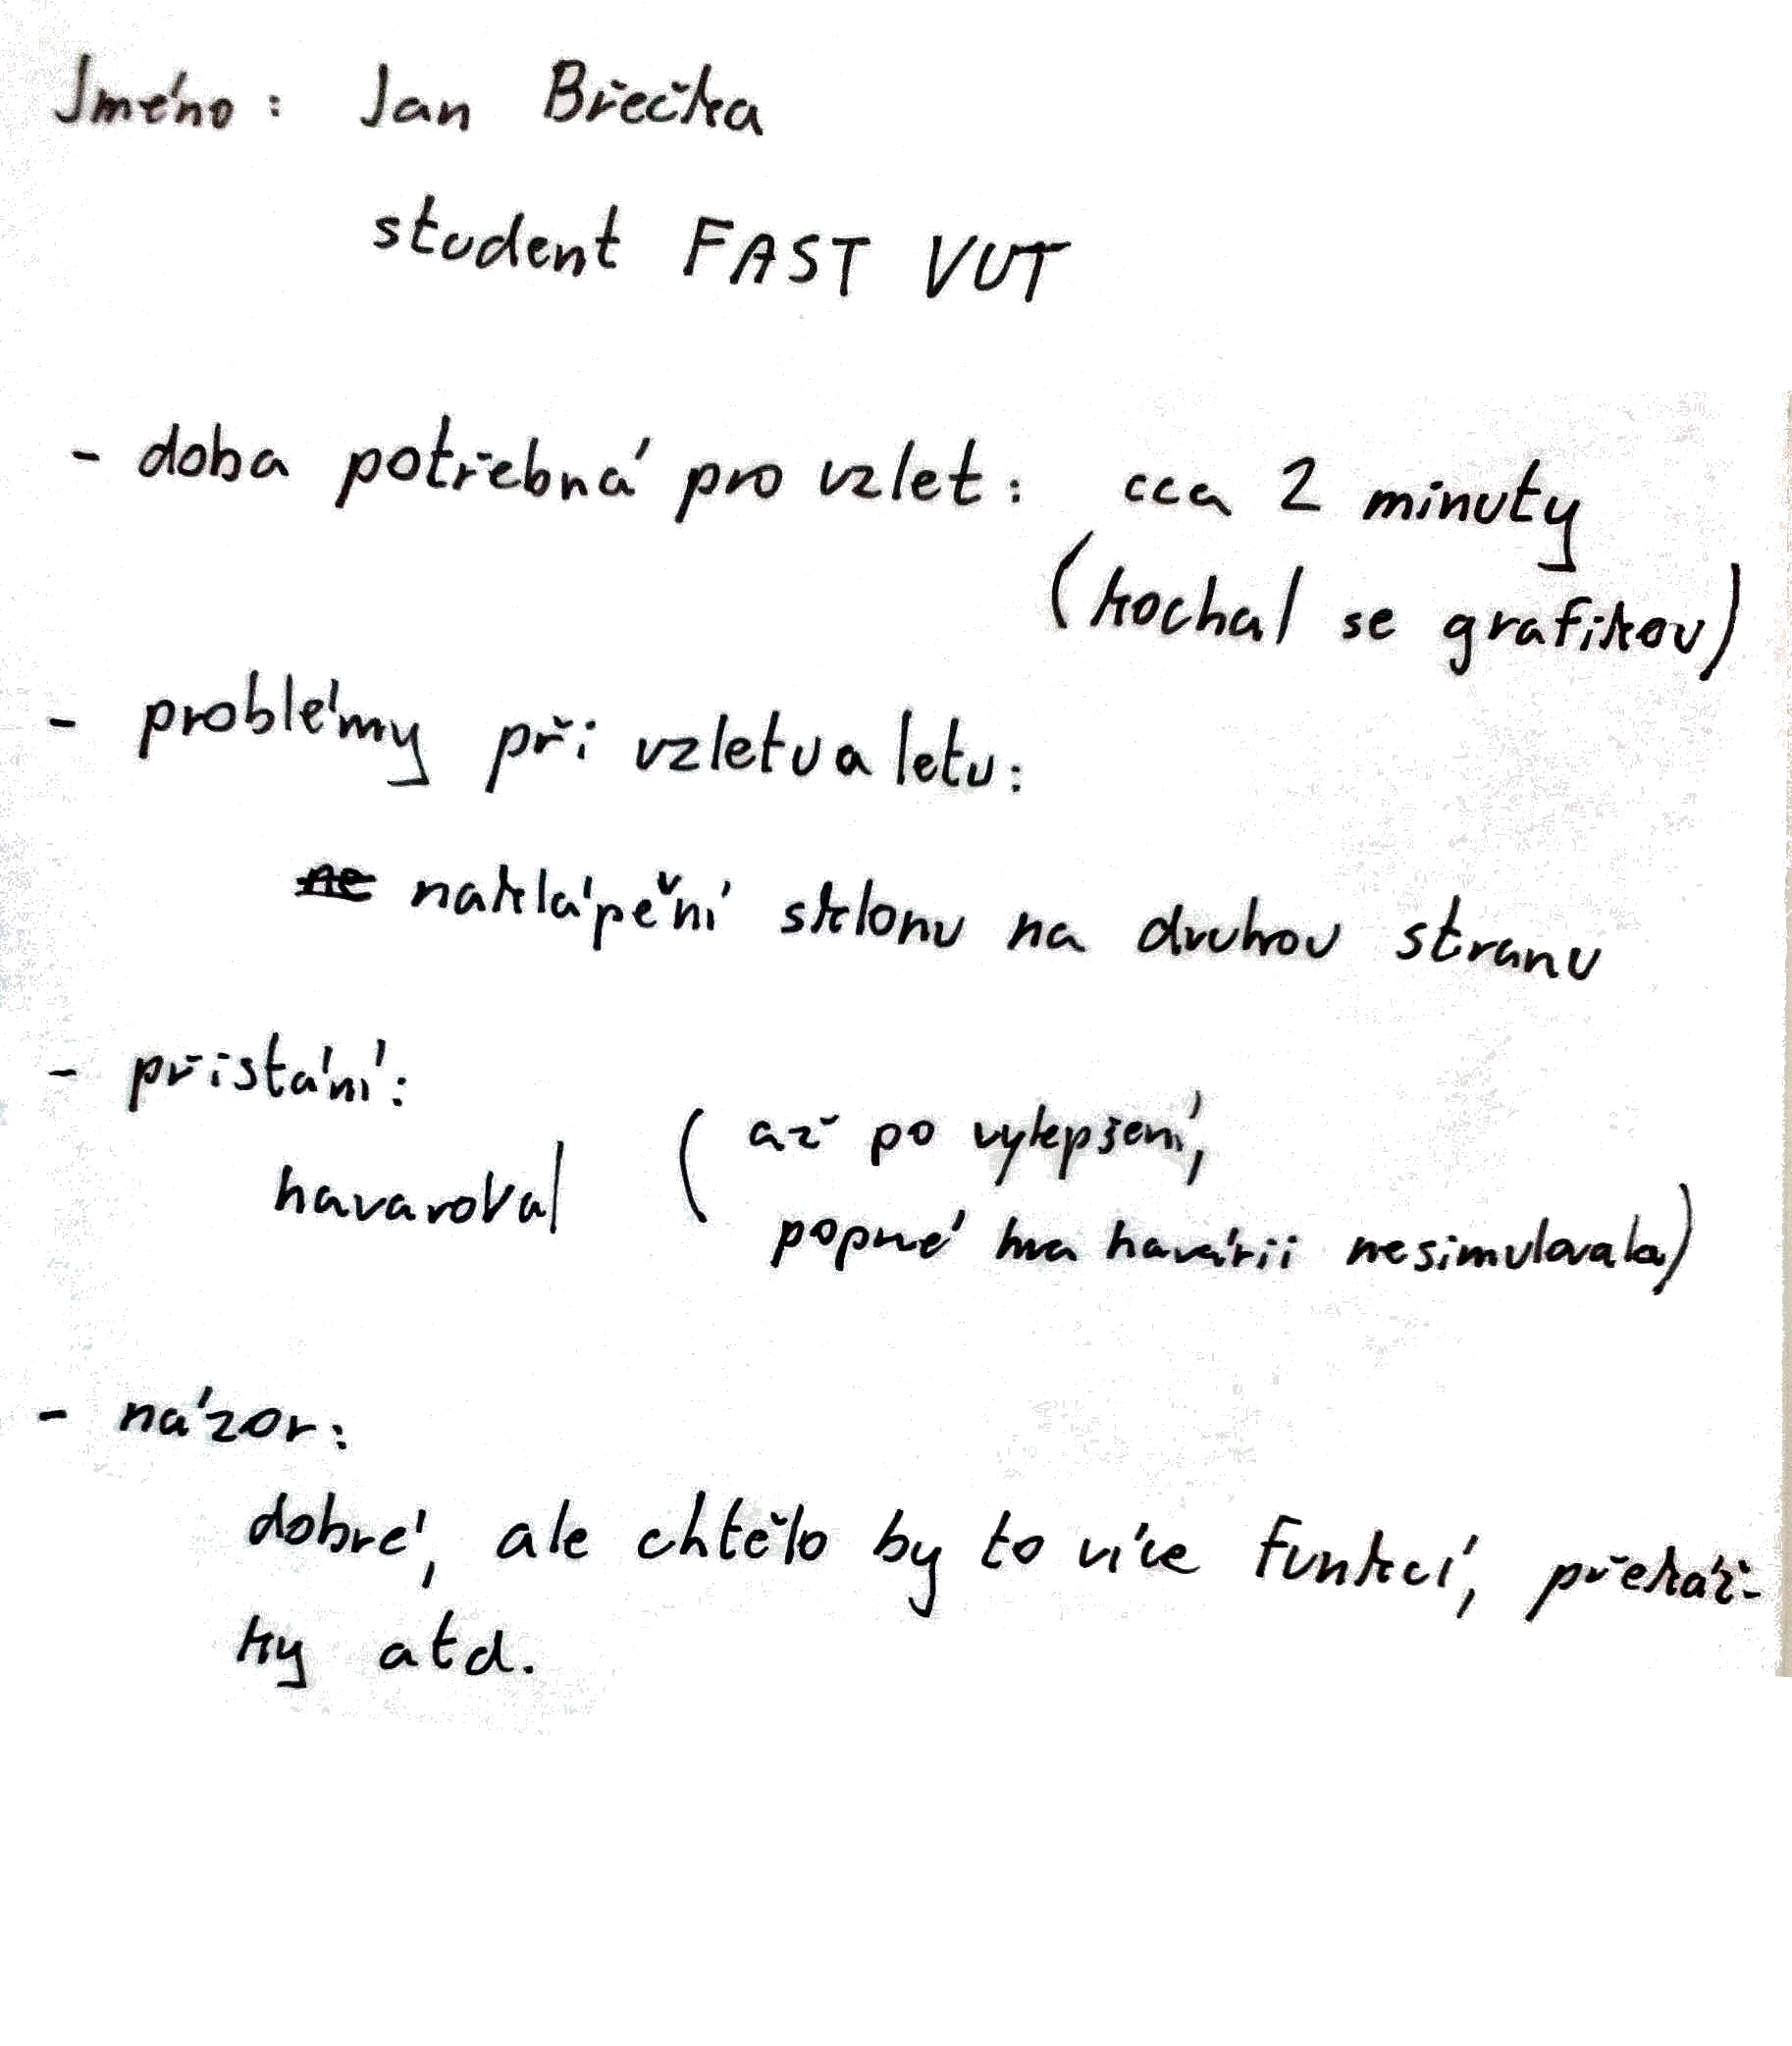 Jméno: Jan Břečka
student FAST VUT
- doba potřebná pro vzlet: cca 2 minuty
(kochal se grafikou)
- problémy při vzletu a letu:
ne naklápěňí sklonu na druhou stranu
- přistání:
havaroval (až po vylepšení,
poprvé hra havárii nesimulovala)
- názor:
dobré, ale chtělo by to více funkcí, překáž-
ky atd.